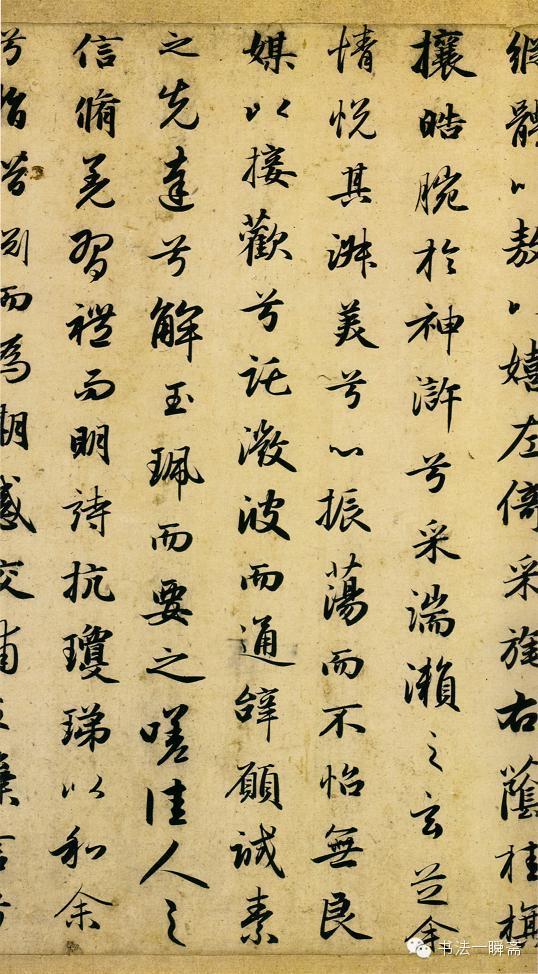 縱體以敖以嬉左倚采旄右蔭桂旗
攘皓腕於神滸兮采湍瀨之玄芝余
情悅其淑美兮心振蕩而不怡無良
媒以接歡兮託微波而通辭願誠素
之先達兮解玉珮而要之嗟佳人之
信脩羌習禮而明詩抗瓊珶以和余
兮指潛渕而為期感交甫之棄言兮
书法一瞬斋